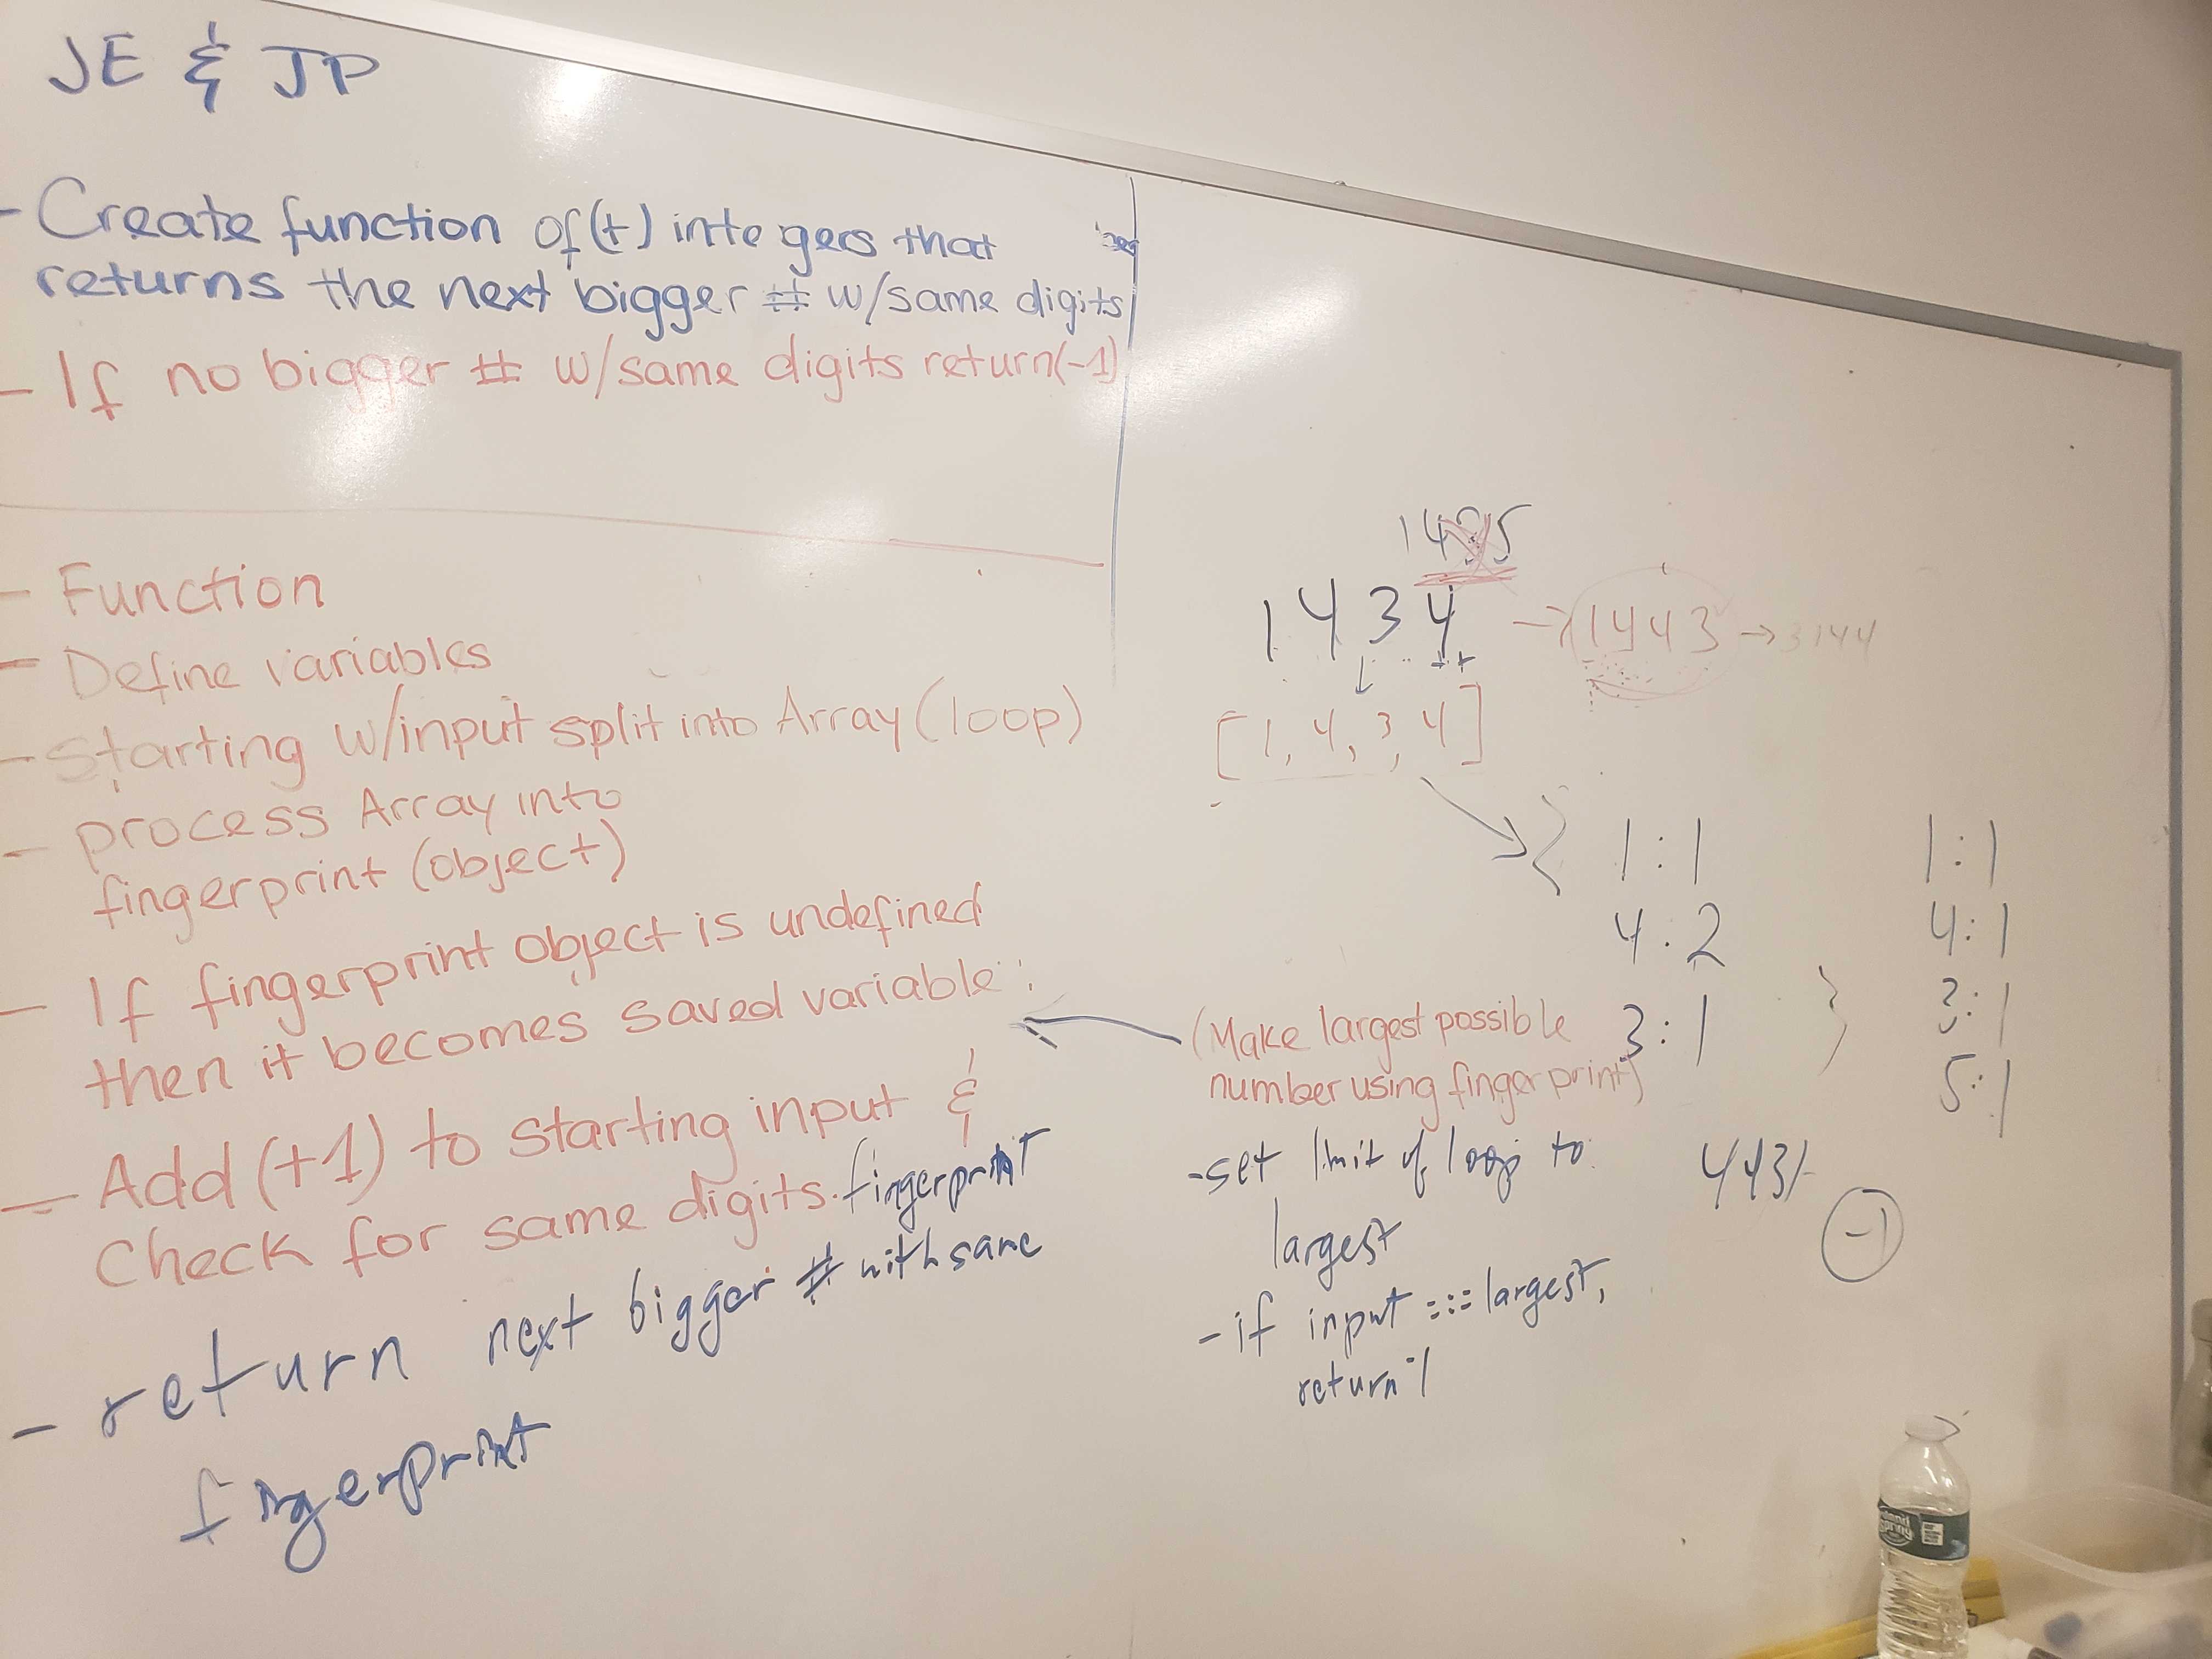 JE & JP
- Create function of (+) integers that
returns the next bigger # w/same digits
- If no bigger # w/same digits return(-1)
- Function
- Define variables
- Starting w/input split into Array (loop)
- process Array into
fingerprint (object)
- If fingerprint object is undefined
then it becomes saved variable
- Add (+1) to starting input &
Check for same digits. fingerprint
- return next bigger # with same
fingerprint
1435
1434 → 1443 → 3144
++
[1, 4, 3, 4]
{ 1:1
4:2
3:1 }
1:1
4:1
3:1
5:1
(Make largest possible
number using fingerprint)
-set limit of loop to
largest
4431
-1
-if input === largest,
return -1